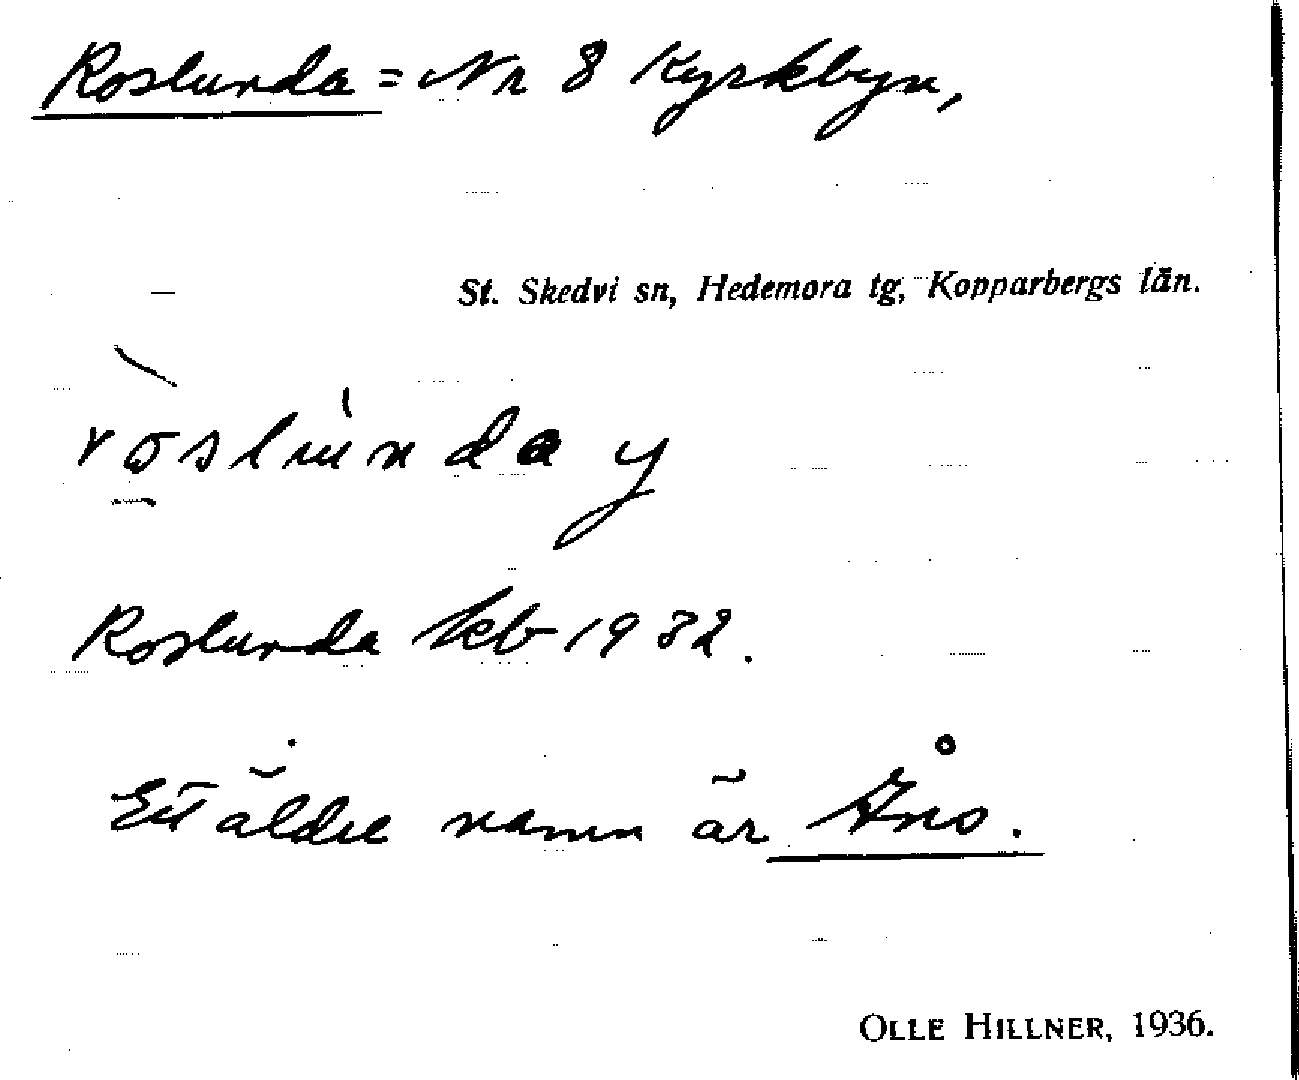 Roslunda = Nr 8 Kyrkbyn,
St. Skedvi sn, Hedemora tg, Kopparbergs län.
ròslu̍nda y
Roslunda kb 1932.
Ett äldre namn är Åns.
OLLE HILLNER, 1936.